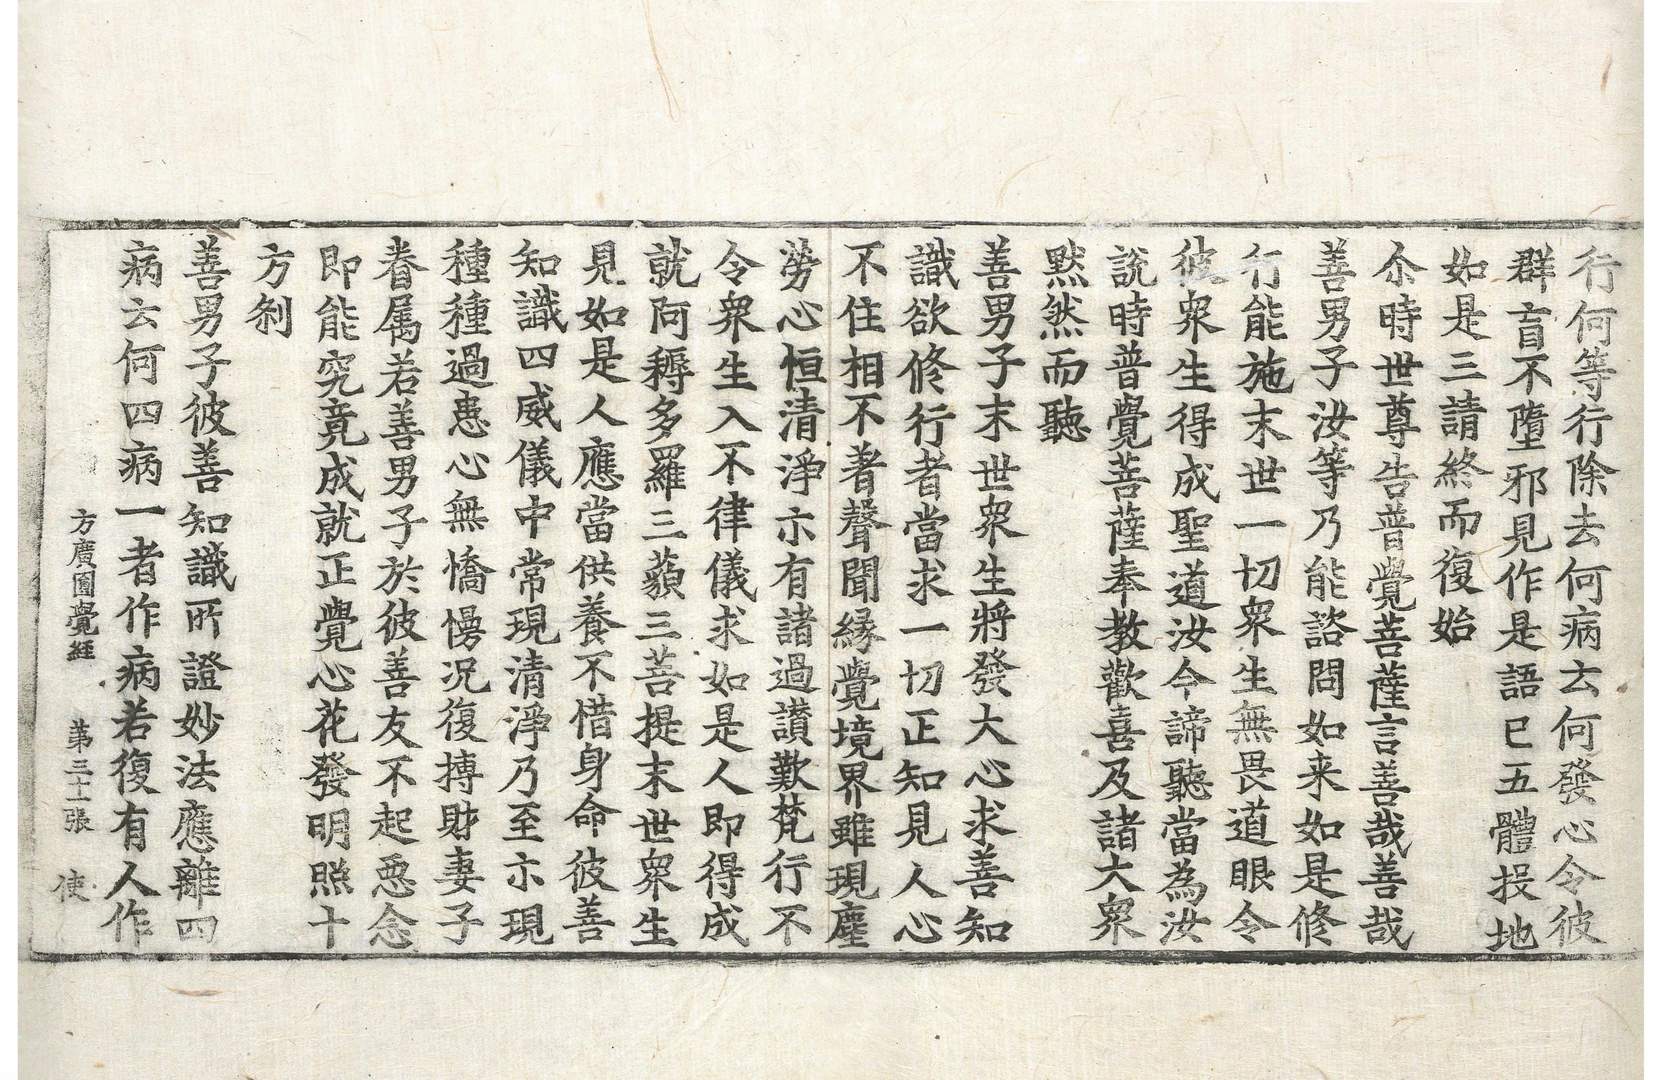 行何等行除去何病云何發心令彼
群盲不墮邪見作是語已五體投地
如是三請終而復始
尒時世尊告普覺菩薩言善哉善哉
善男子汝等乃能諮問如来如是修
行能施末世一切衆生無畏道眼令
彼衆生得成聖道汝今諦聽當為汝
說時普覺菩薩奉教歡喜及諸大衆
默然而聽
善男子末世衆生將發大心求善知
識欲修行者當求一切正知見人心
不住相不著聲聞縁覺境界雖現塵
勞心恒清淨示有諸過讃歎梵行不
令衆生入不律儀求如是人即得成
就阿耨多羅三藐三菩提末世衆生
見如是人應當供養不惜身命彼善
知識四威儀中常現清淨乃至示現
種種過患心無憍慢况復摶財妻子
眷属若善男子於彼善友不起惡念
即能究竟成就正覺心花發明照十
方刹
善男子彼善知識所證妙法應離四
病云何四病一者作病若復有人作
方廣圓覺経 第三十一張 使